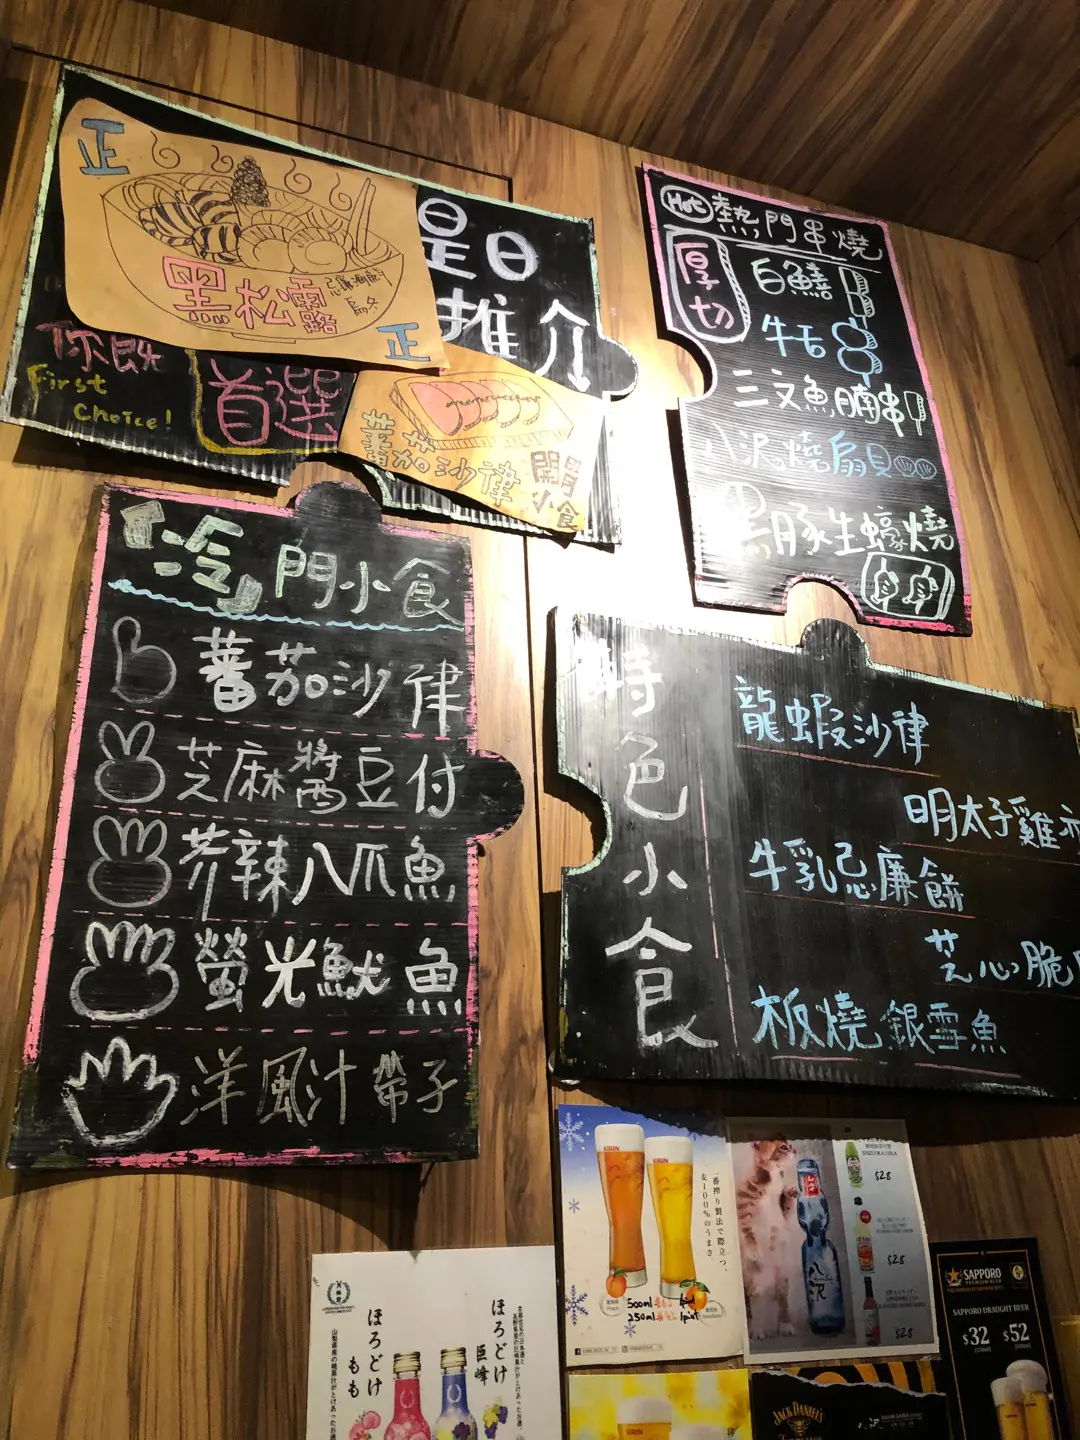 正
黑松露
正
是日
推介
你既
First
Choice!
首選
蕃茄沙律
開胃
小食
Hot 熱門串燒
厚切
白鱔
牛舌
三文魚腩串
八沢燒扇貝
黑豚生蠔燒
冷門小食
蕃茄沙律
芝麻醬豆付
芥辣八爪魚
螢光魷魚
洋風汁帶子
特色小食
龍蝦沙律
明太子雞
牛乳忌廉餅
芝心脆
板燒銀雪魚
KIRIN
KIRIN
一番搾り製法で際立つ、
麦100%のうまさ
500ml
1pint
250ml
1pint
八沢
$28
$28
$28
SAPPORO
SAPPORO DRAUGHT BEER
$32
$52
ほろどけ
もも
ほろどけ
巨峰
JACK DANIEL'S